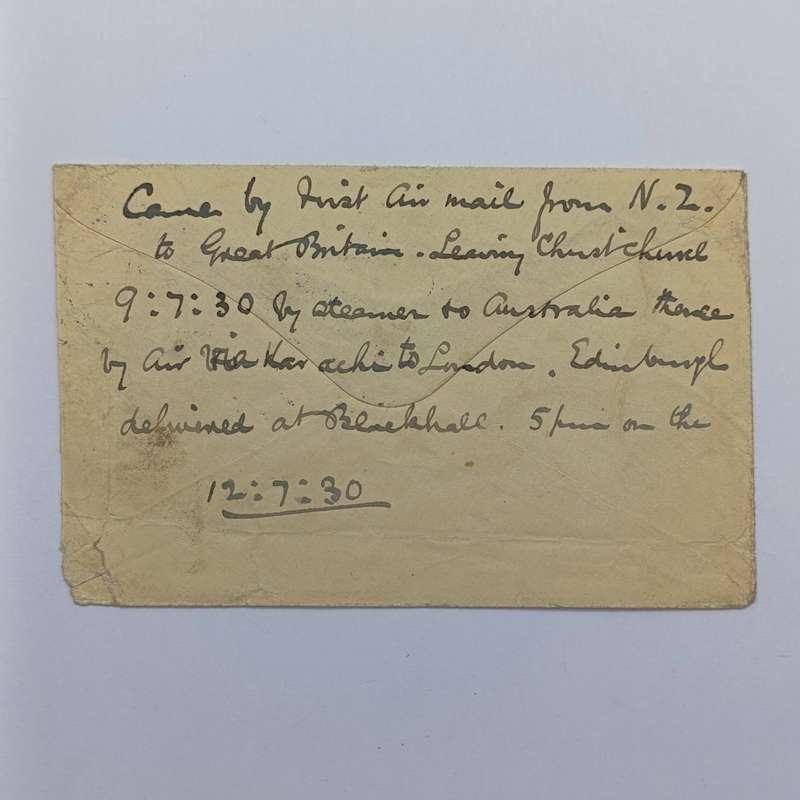 Came by First Air mail from N.Z.
to Great Britain. Leaving Christchurch
9:7:30 by steamer to Australia thence
by Air via Karachi to London. Edinburgh
delivered at Blackhall. 5 pm on the
12:7:30